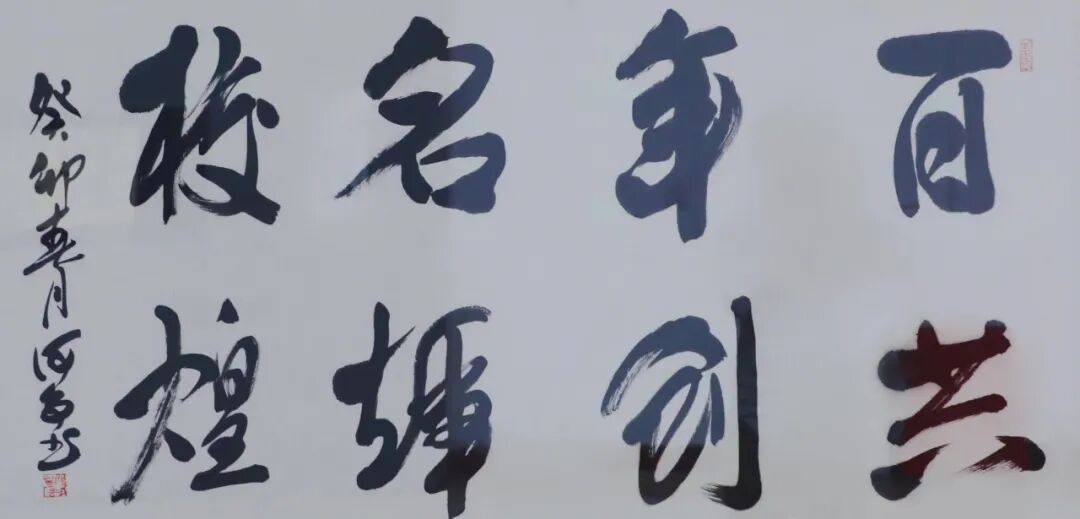 百年名校
共创辉煌
癸卯春月河🔲书